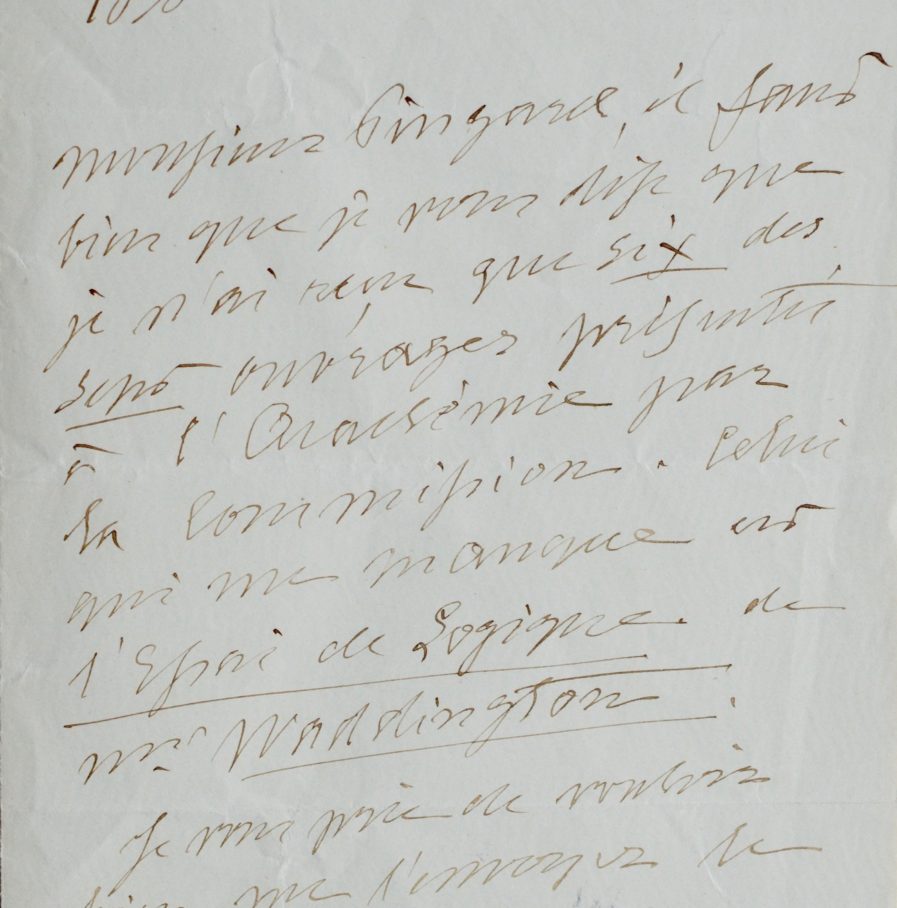 Monsieur Pingard, il faut
bien que je vous dise que
je n'ai reçu que six des
sept ouvrages présentés
à l'Académie par
la Commission. Celui
qui me manque est
l'Essai de Logique de
Mr Waddington.
Je vous prie de vouloir
bien me l'envoyer le